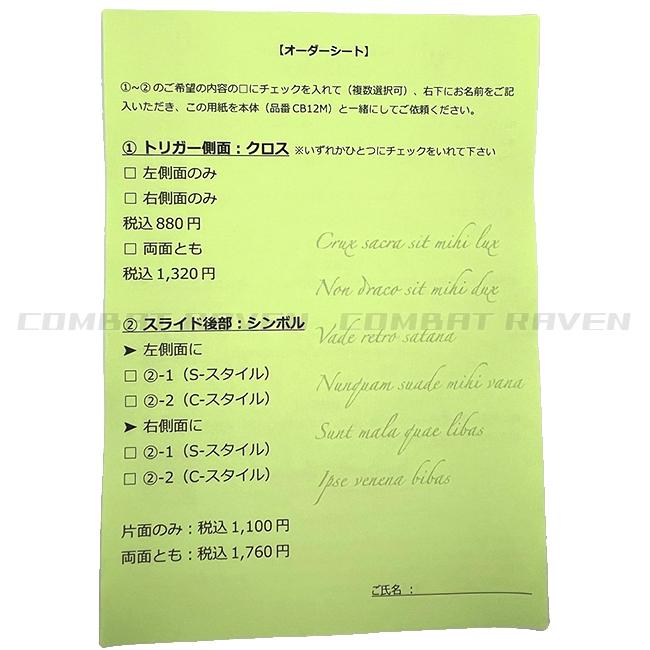 【オーダーシート】
①~②のご希望の内容の□にチェックを入れて（複数選択可）、右下にお名前をご記
入いただき、この用紙を本体（品番CB12M）と一緒にしてご依頼ください。
① トリガー側面：クロス ※いずれかひとつにチェックをいれて下さい
□ 左側面のみ
□ 右側面のみ
税込880円
□ 両面とも
税込1,320円
Crux sacra sit mihi lux
Non draco sit mihi dux
Vade retro satana
Nunquam suade mihi vana
Sunt mala quae libas
Ipse venena bibas
COMBAT RAVEN COMBAT RAVEN
② スライド後部：シンボル
➤ 左側面に
□ ②-1（S-スタイル）
□ ②-2（C-スタイル）
➤ 右側面に
□ ②-1（S-スタイル）
□ ②-2（C-スタイル）
片面のみ：税込1,100円
両面とも：税込1,760円
ご氏名 ：